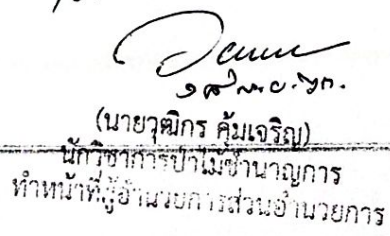 (นายวุฒิกร คุ้มเจริญ)
นักวิชาการป่าไม้ชำนาญการ
ทำหน้าที่ผู้อำนวยการส่วนอำนวยการ